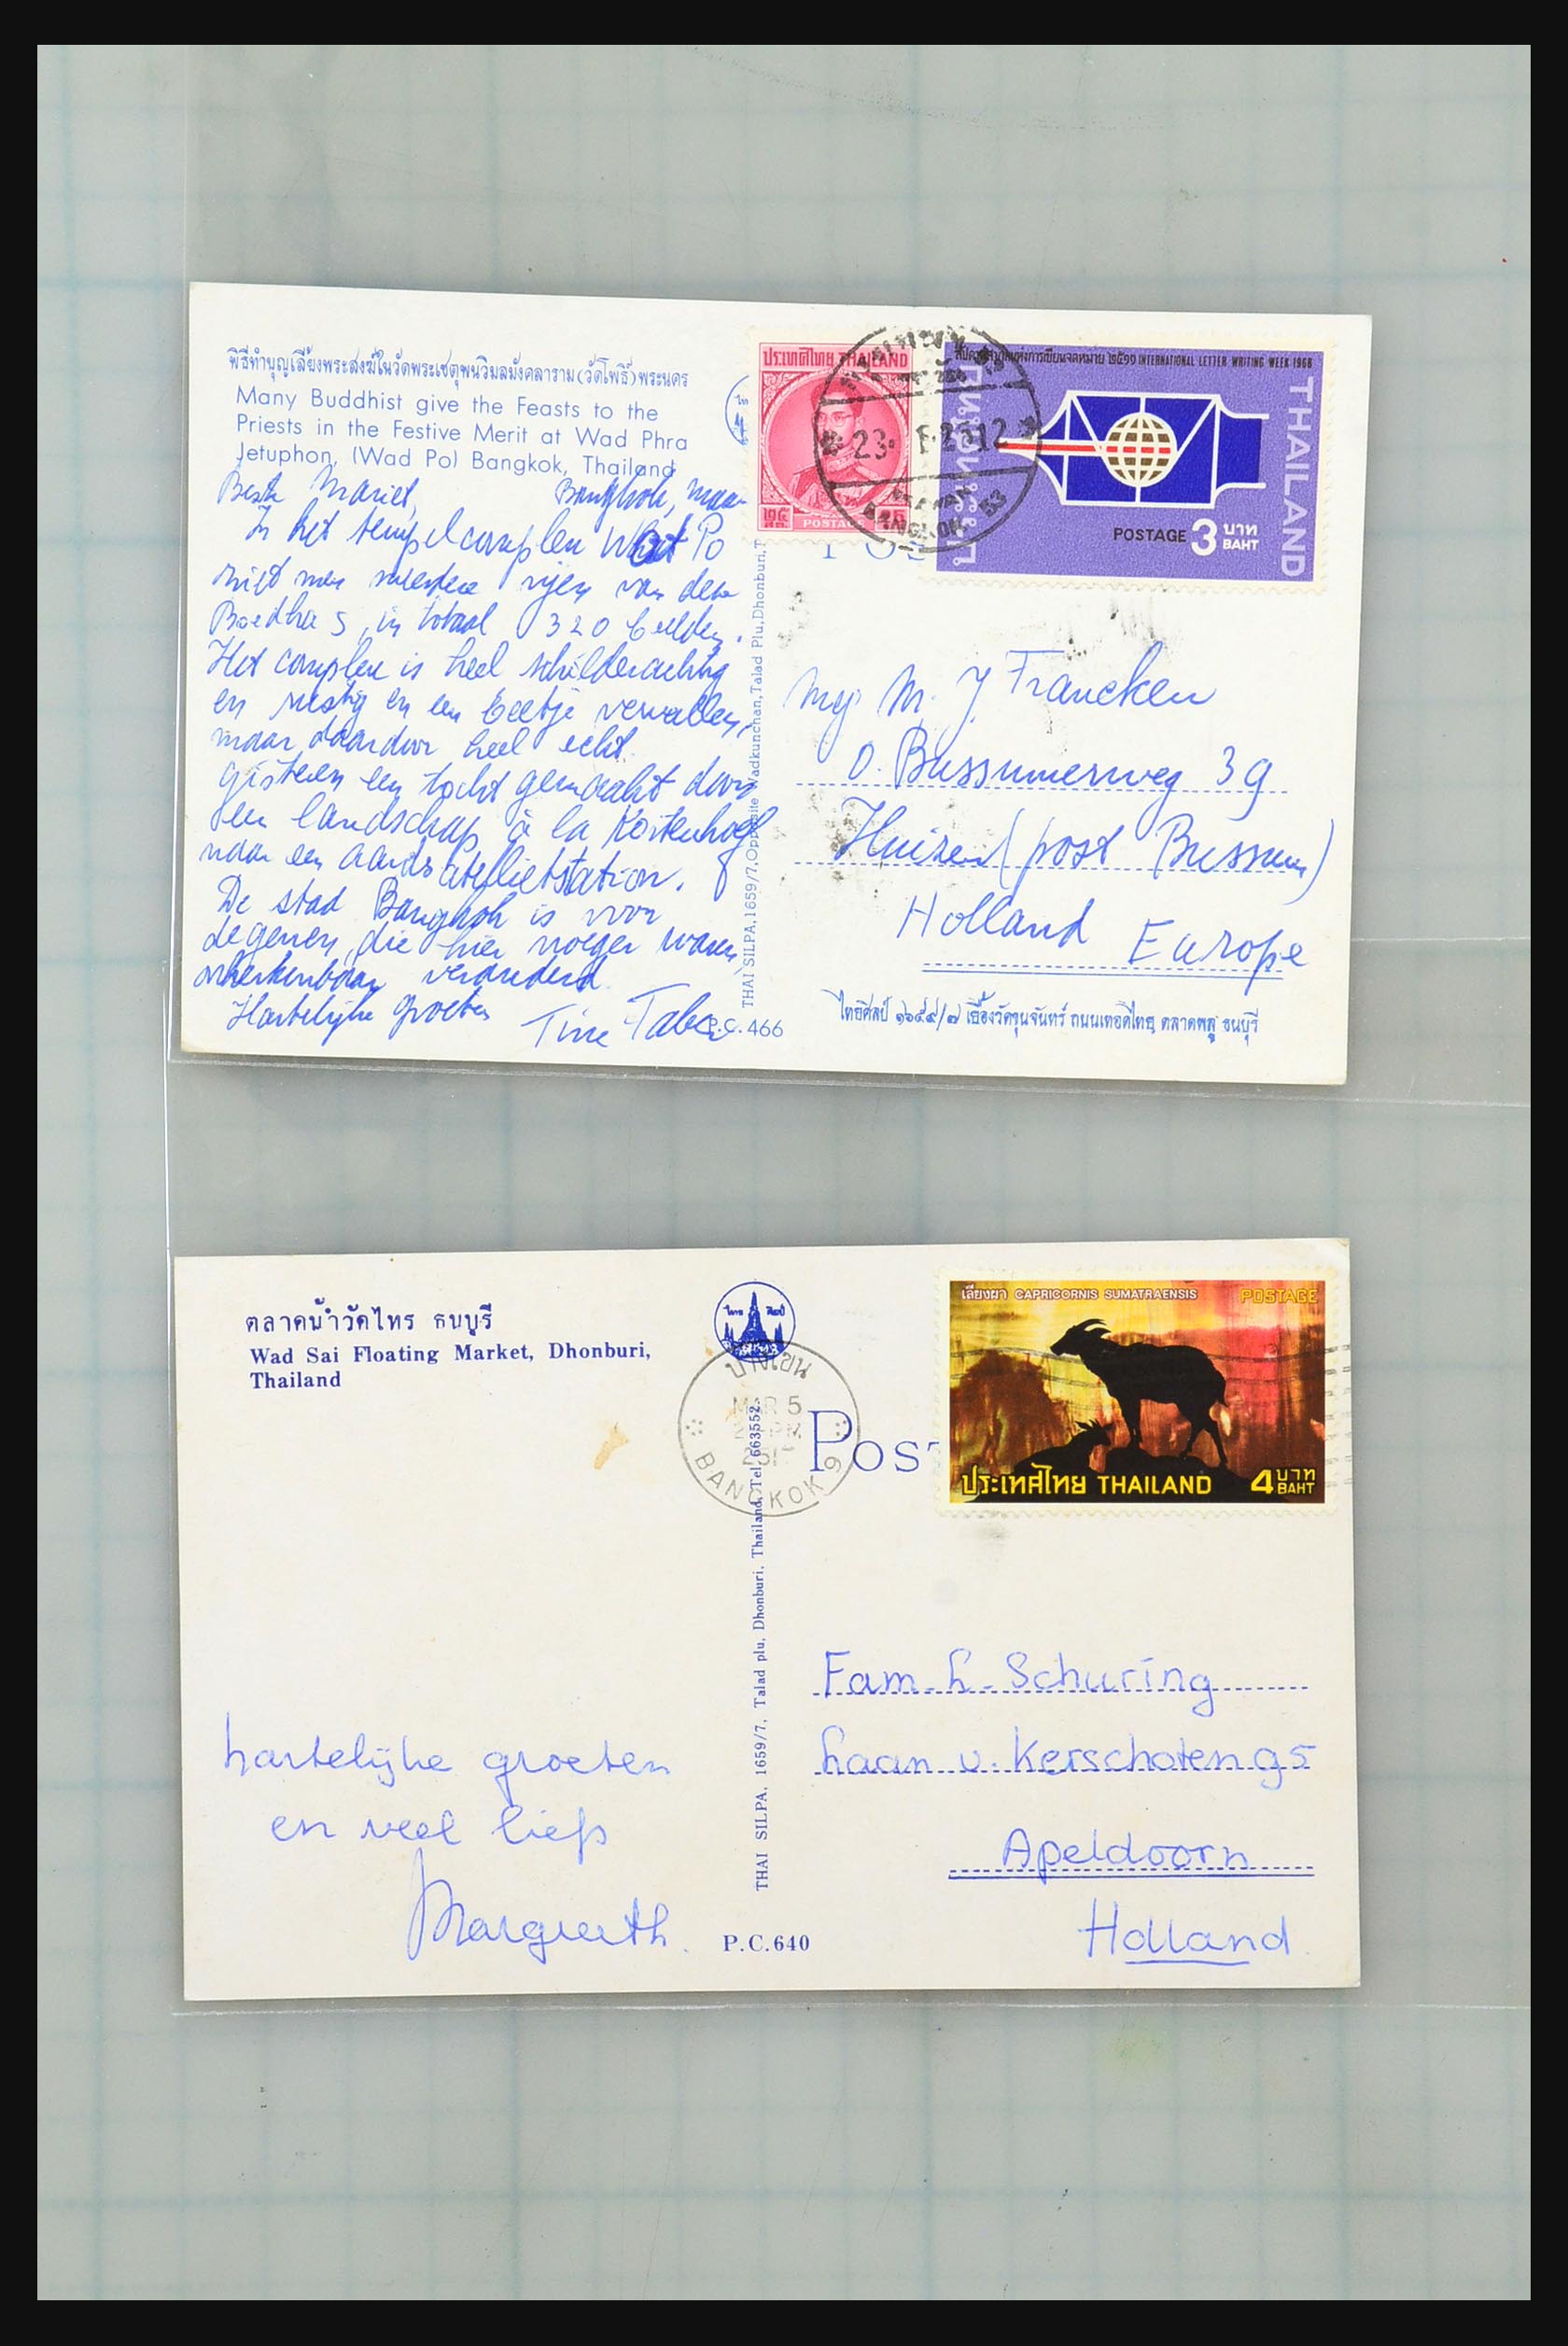 พิธีทำบุญเลี้ยงพระสงฆ์ในวัดพระเชตุพนวิมลมังคลาราม(วัดโพธิ์)พระนคร
Many Buddhist give the Feasts to the
Priests in the Festive Merit at Wad Phra
Jetuphon, (Wad Po) Bangkok, Thailand
Beste Mariet, Bangkok,
In het tempelcomplex What Po
ziet men meerdere rijen van deze
Boedha's, in totaal 320 beelden.
Het complex is heel schilderachtig
en rustig en een beetje vervallen,
maar daardoor heel echt.
Gisteren een tocht gemaakt door
een landschap à la Kortenhoef
naar een aardsatellietstation.
De stad Bangkok is voor
degenen, die hier vroeger waren,
onherkenbaar veranderd.
Hartelijke groeten
Tine
P.C. 466
THAI SILPA, 1659/7, Opposite Wadkunchan, Talad Plu, Dhonburi, T
ประเทศไทย THAILAND
๒๕
POSTAGE
23. 12
BANGKOK
สัปดาห์สากลแห่งการเขียนจดหมาย ๒๕๑๑ INTERNATIONAL LETTER WRITING WEEK 1968
ประเทศไทย
THAILAND
POSTAGE 3 บาท
BAHT
POS
Mej. M. J. Francken
O. Bussummerweg 39
Huizen (post Bussum)
Holland Europe
ไทยศิลป์ ๑๖๕๙/๗ เยื้องวัดขุนจันทร์ ถนนเทอดไทย ตลาดพลู ธนบุรี
ตลาดน้ำวัดไทร ธนบุรี
Wad Sai Floating Market, Dhonburi,
Thailand
ไทย ศิลป์
บางเขน
MAR 5
PM
BANGKOK 9
POST
เลียงผา CAPRICORNIS SUMATRAENSIS POSTAGE
ประเทศไทย THAILAND 4 บาท
BAHT
THAI SILPA, 1659/7, Talad plu, Dhonburi, Thailand, Tel. 663552.
hartelijke groeten
en veel liefs
Margreeth.
P.C.640
Fam. h. Schuring
Laan v. Kerschoten 95
Apeldoorn
Holland.